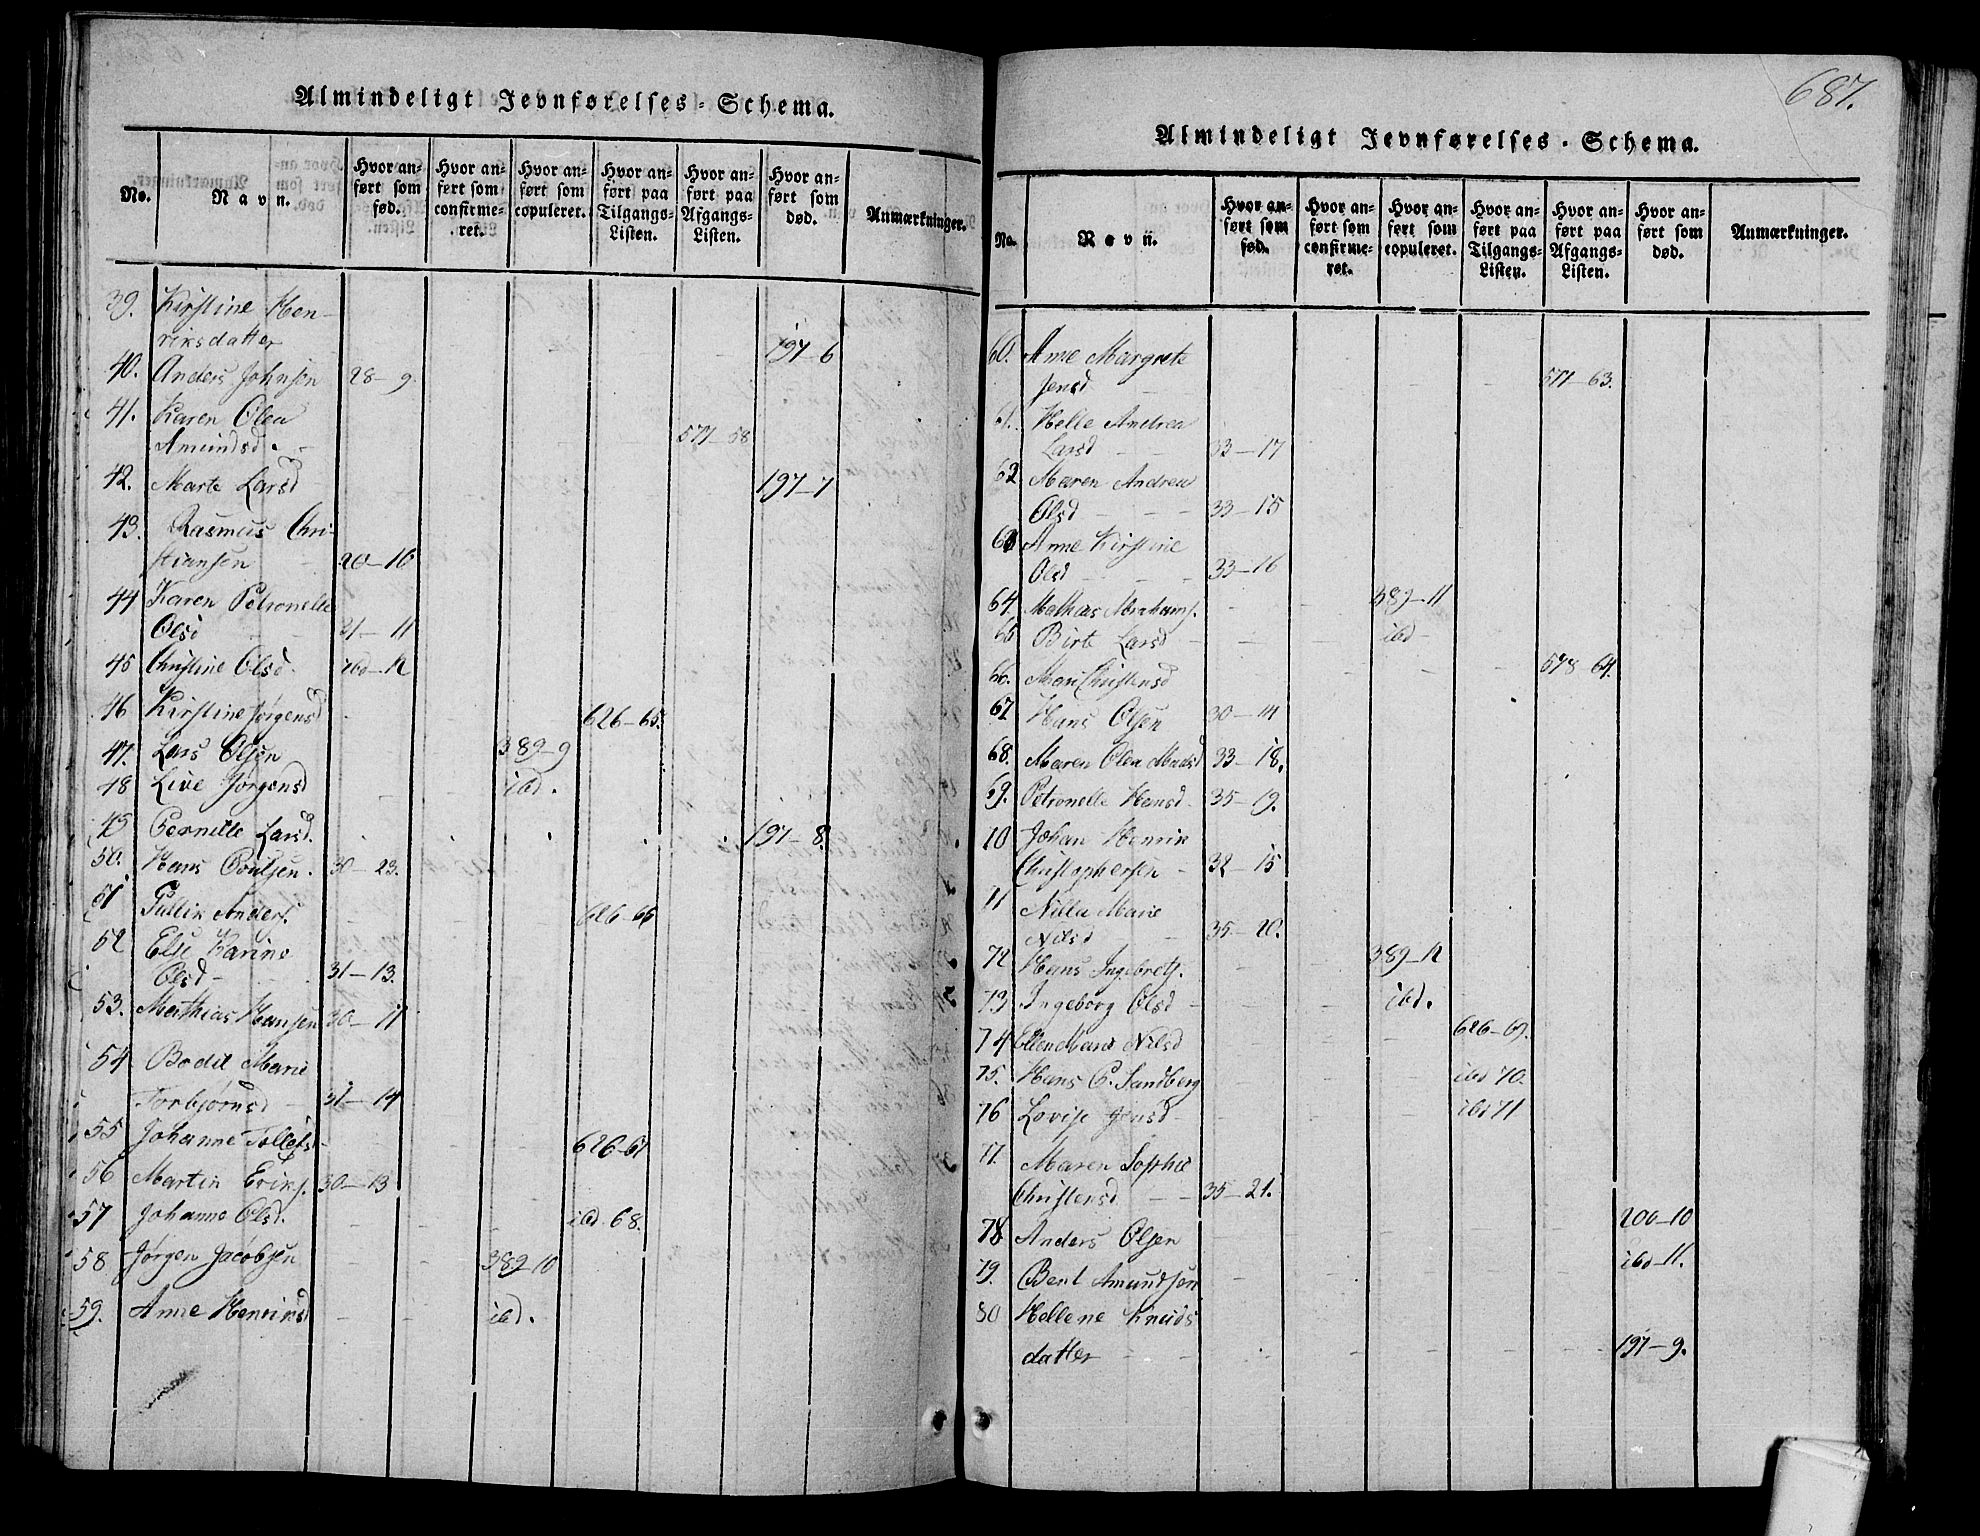 Almindeligt Jevnførelses-Schema.
No. Navn. Hvor anført som fød. Hvor anført som confirmeret. Hvor anført som copuleret. Hvor anført paa Tilgangs-Listen. Hvor anført paa Afgangs-Listen. Hvor anført som død. Anmærkninger.
39. Kirstine Hen-
riksdatter 197-6
40. Anders Johnsen 28-9.
41. Karen Olea
Amundsd. 577-58
42. Marte Larsd 197-7
43. Rasmus Chri-
stiansen 20-10
44 Karen Petronelle
Olsd 21-11
45 Christine Olsd. ibd-12
46 Kirstine Jørgensd 626-65.
47. Lars Olsen 389-9
48 Live Jørgensd ibd.
49 Pernille Larsd. 197-8.
50. Hans Poulsen. 30-23.
51 Gullik Anders. 626-66
52 Else Karine
Olsd 31-13.
53. Mathias Hansen 30-11
54 Bodil Marie
Torbjørnsd 31-14
55 Johanne Tollefs 626-67
56 Martin Eriks. 30-13
57 Johanne Olsd. ibd. 68.
58 Jørgen Jacobsen 389 10
59. Anne Henriksd ibd.
687.
Almindeligt Jevnførelses-Schema.
No. Navn. Hvor anført som fød. Hvor anført som confirmeret. Hvor anført som copuleret. Hvor anført paa Tilgangs-Listen. Hvor anført paa Afgangs-Listen. Hvor anført som død. Anmærkninger.
60. Anne Margrete
Jensd 577-63.
61. Helle Andrea
Larsd 33-17
62 Maren Andrea
Olsd 33-15
63 Anne Kirstine
Olsd 33-16
64. Mathias Abrahams. 389-11
65 Birte Larsd ibd
66. Mari Christensd 578-64.
67 Hans Olsen 30-14
68. Maren Olea Madsd 33-18.
69. Petronelle Hansd 35-19.
70 Johan Henrik
Christophersen 32-15
71 Nilla Marie
Nilsd 35-20.
72 Hans Ingebrets. 389-12
73 Ingeborg Olsd ibd.
74 Ellen Marie Nilsd 626-69.
75. Hans C. Sandberg ibd 70.
76 Lovise Jensd ibd 71
77. Maren Sophie
Christensd 35-21.
78 Anders Olsen 200-10
79. Bent Amundsen ibd-11.
80 Hellene Knuds
datter 197-9.